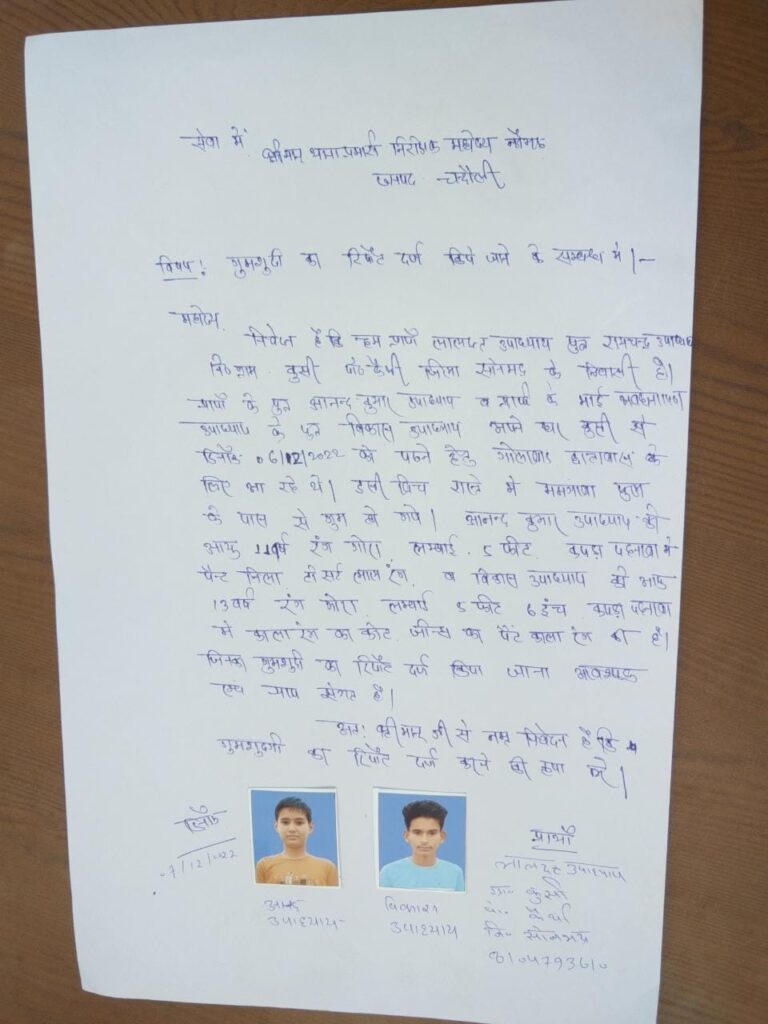 सेवा में
श्रीमान् थाना प्रभारी निरिक्षक महोदय नौगढ
जनपद - चन्दौली
विषय : गुमशुदी का रिर्पोट दर्ज किये जाने के सम्बन्ध में ।-
महोदय,
निवेदन है कि हम प्रार्थी लालदत्त उपाध्याय पुत्र रामचन्द्र उपाध्याय
नि० ग्राम कुसी पो० जिला सोनभद्र के निवासी है।
प्रार्थी के पुत्र आनन्द कुमार उपाध्याय व प्रार्थी के भाई
उपाध्याय के पुत्र विकास उपाध्याय अपने घर कुसी से
दिनाँक 06/12/2022 को पढने हेतु गोलाबाद छात्रावास के
लिए आ रहे थे। इसी बिच रास्ते में पुल
के पास से गुम हो गये। आनन्द कुमार उपाध्याय की
आयु 11वर्ष रंग गोरा लम्बाई 5 फीट कपड़ा पहनावा में
पैन्ट निला टी सर्ट लाल रंग, व विकास उपाध्याय की आयु
13 वर्ष रंग गोरा लम्बाई 5 फीट 6 इंच कपड़ा पहनावा
में काला रंग का कोट जीन्स का पैंट काला रंग का है।
जिनका गुमशुदी का रिर्पोट दर्ज किया जाना आवश्यक
एवं न्याय संगत है।
अतः श्रीमान् जी से नम्र निवेदन है कि
गुमशुदगी का रिर्पोट दर्ज करने की कृपा करें।
दिनाँक
07/12/2022
आनन्द
उपाध्याय
विकास
उपाध्याय
प्रार्थी
लालदत्त उपाध्याय
ग्रा०- कुसी
पो०-
जि०- सोनभद्र